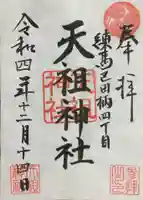 奉拝
練馬区田柄四丁目
天祖神社
令和四年十二月十四日